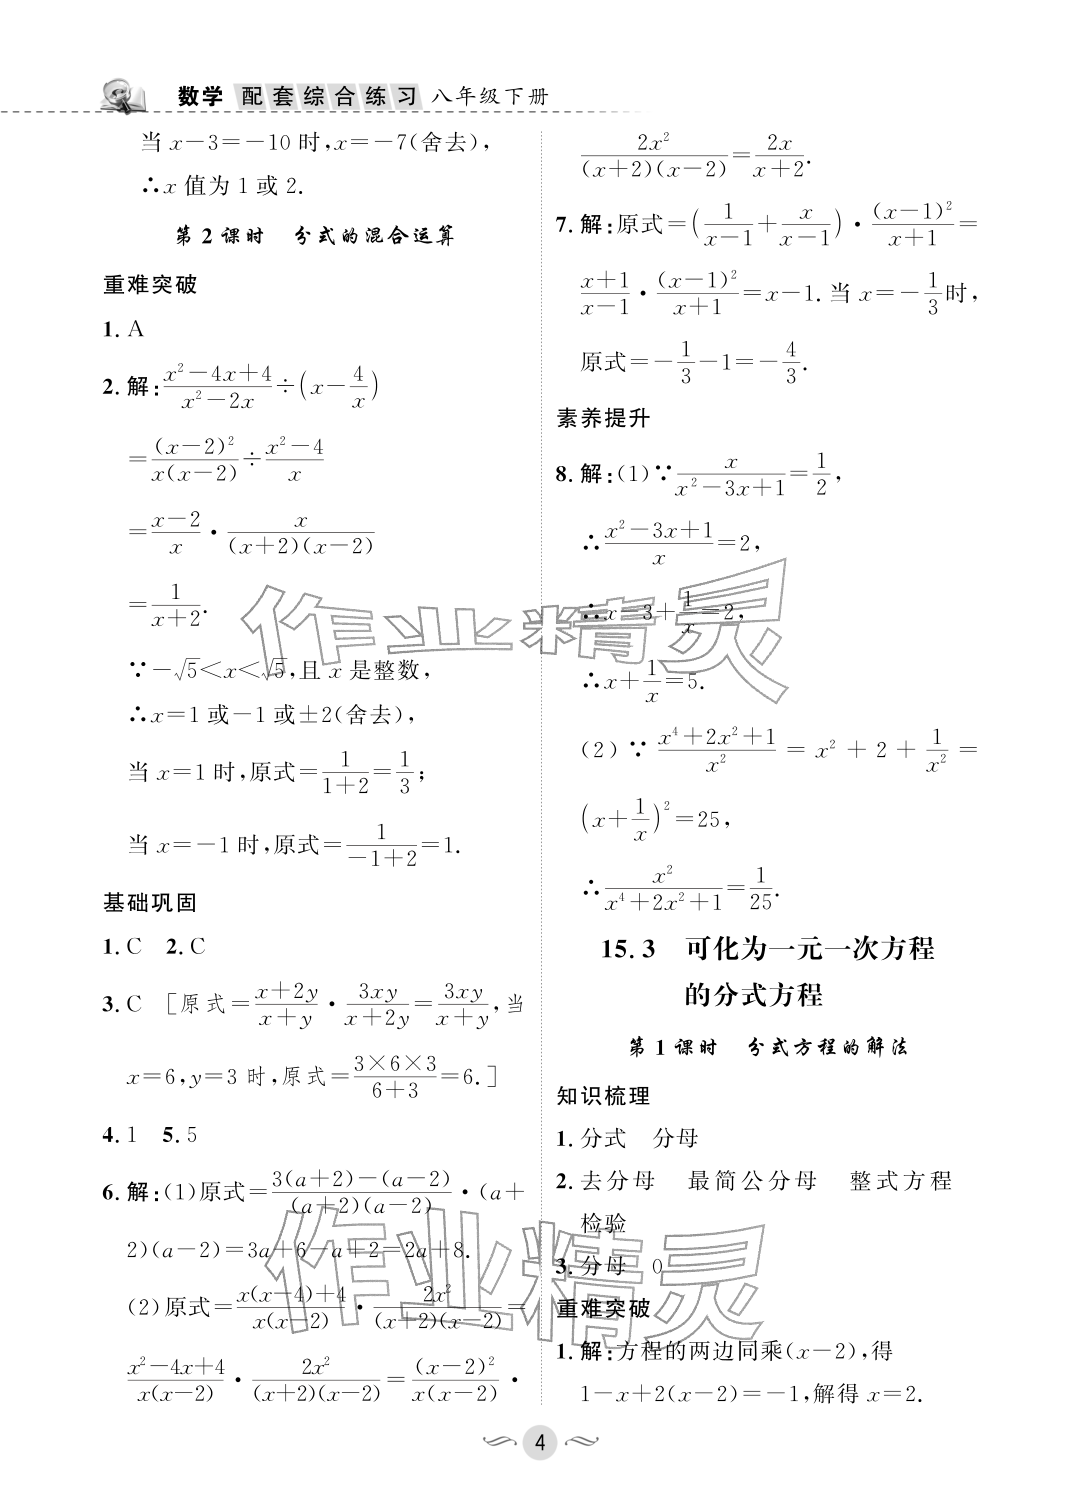 数学 配套综合练习 八年级下册
当 x－3＝－10 时,x＝－7(舍去),
∴x 值为 1 或 2.
第 2 课时 分式的混合运算
重难突破
1. A
2. 解:\frac{x²－4x＋4}{x²－2x}÷(x－\frac{4}{x})
＝\frac{(x－2)²}{x(x－2)}÷\frac{x²－4}{x}
＝\frac{x－2}{x}·\frac{x}{(x＋2)(x－2)}
＝\frac{1}{x＋2}.
∵－√5＜x＜√5,且 x 是整数,
∴x＝1 或－1 或±2(舍去),
当 x＝1 时,原式＝\frac{1}{1＋2}＝\frac{1}{3};
当 x＝－1 时,原式＝\frac{1}{－1＋2}＝1.
基础巩固
1. C 2. C
3. C [原式＝\frac{x＋2y}{x＋y}·\frac{3xy}{x＋2y}＝\frac{3xy}{x＋y},当
x＝6,y＝3 时,原式＝\frac{3×6×3}{6＋3}＝6.]
4. 1 5. 5
6. 解:(1)原式＝\frac{3(a＋2)－(a－2)}{(a＋2)(a－2)}·(a＋
2)(a－2)＝3a＋6－a＋2＝2a＋8.
(2)原式＝\frac{x(x－4)＋4}{x(x－2)}·\frac{2x²}{(x＋2)(x－2)}＝
\frac{x²－4x＋4}{x(x－2)}·\frac{2x²}{(x＋2)(x－2)}＝\frac{(x－2)²}{x(x－2)}·
\frac{2x²}{(x＋2)(x－2)}＝\frac{2x}{x＋2}.
7. 解:原式＝(\frac{1}{x－1}＋\frac{x}{x－1})·\frac{(x－1)²}{x＋1}＝
\frac{x＋1}{x－1}·\frac{(x－1)²}{x＋1}＝x－1. 当 x＝－\frac{1}{3}时,
原式＝－\frac{1}{3}－1＝－\frac{4}{3}.
素养提升
8. 解:(1)∵\frac{x}{x²－3x＋1}＝\frac{1}{2},
∴\frac{x²－3x＋1}{x}＝2,
∴x－3＋\frac{1}{x}＝2,
∴x＋\frac{1}{x}＝5.
(2)∵\frac{x⁴＋2x²＋1}{x²}＝x²＋2＋\frac{1}{x²}＝
(x＋\frac{1}{x})²＝25,
∴\frac{x²}{x⁴＋2x²＋1}＝\frac{1}{25}.
15.3 可化为一元一次方程
的分式方程
第 1 课时 分式方程的解法
知识梳理
1. 分式 分母
2. 去分母 最简公分母 整式方程
检验
3. 分母 0
重难突破
1. 解:方程的两边同乘(x－2),得
1－x＋2(x－2)＝－1,解得 x＝2.
4
作业精灵
作业精灵